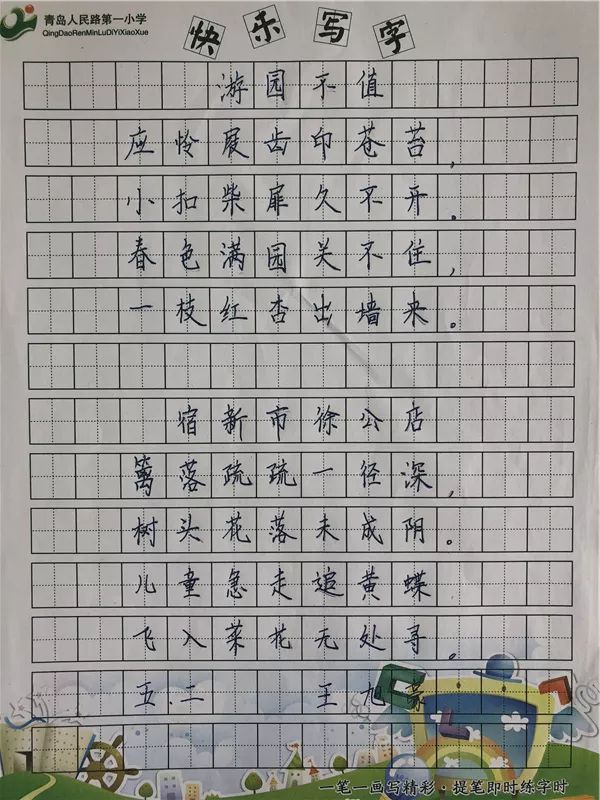 青岛人民路第一小学
QingDaoRenMinLuDiYiXiaoXue
快乐写字
游园不值
应怜屐齿印苍苔,
小扣柴扉久不开。
春色满园关不住,
一枝红杏出墙来。
宿新市徐公店
篱落疏疏一径深,
树头花落未成阴。
儿童急走追黄蝶
飞入菜花无处寻。
五.二 王旭亮
一笔一画写精彩·提笔即时练字时